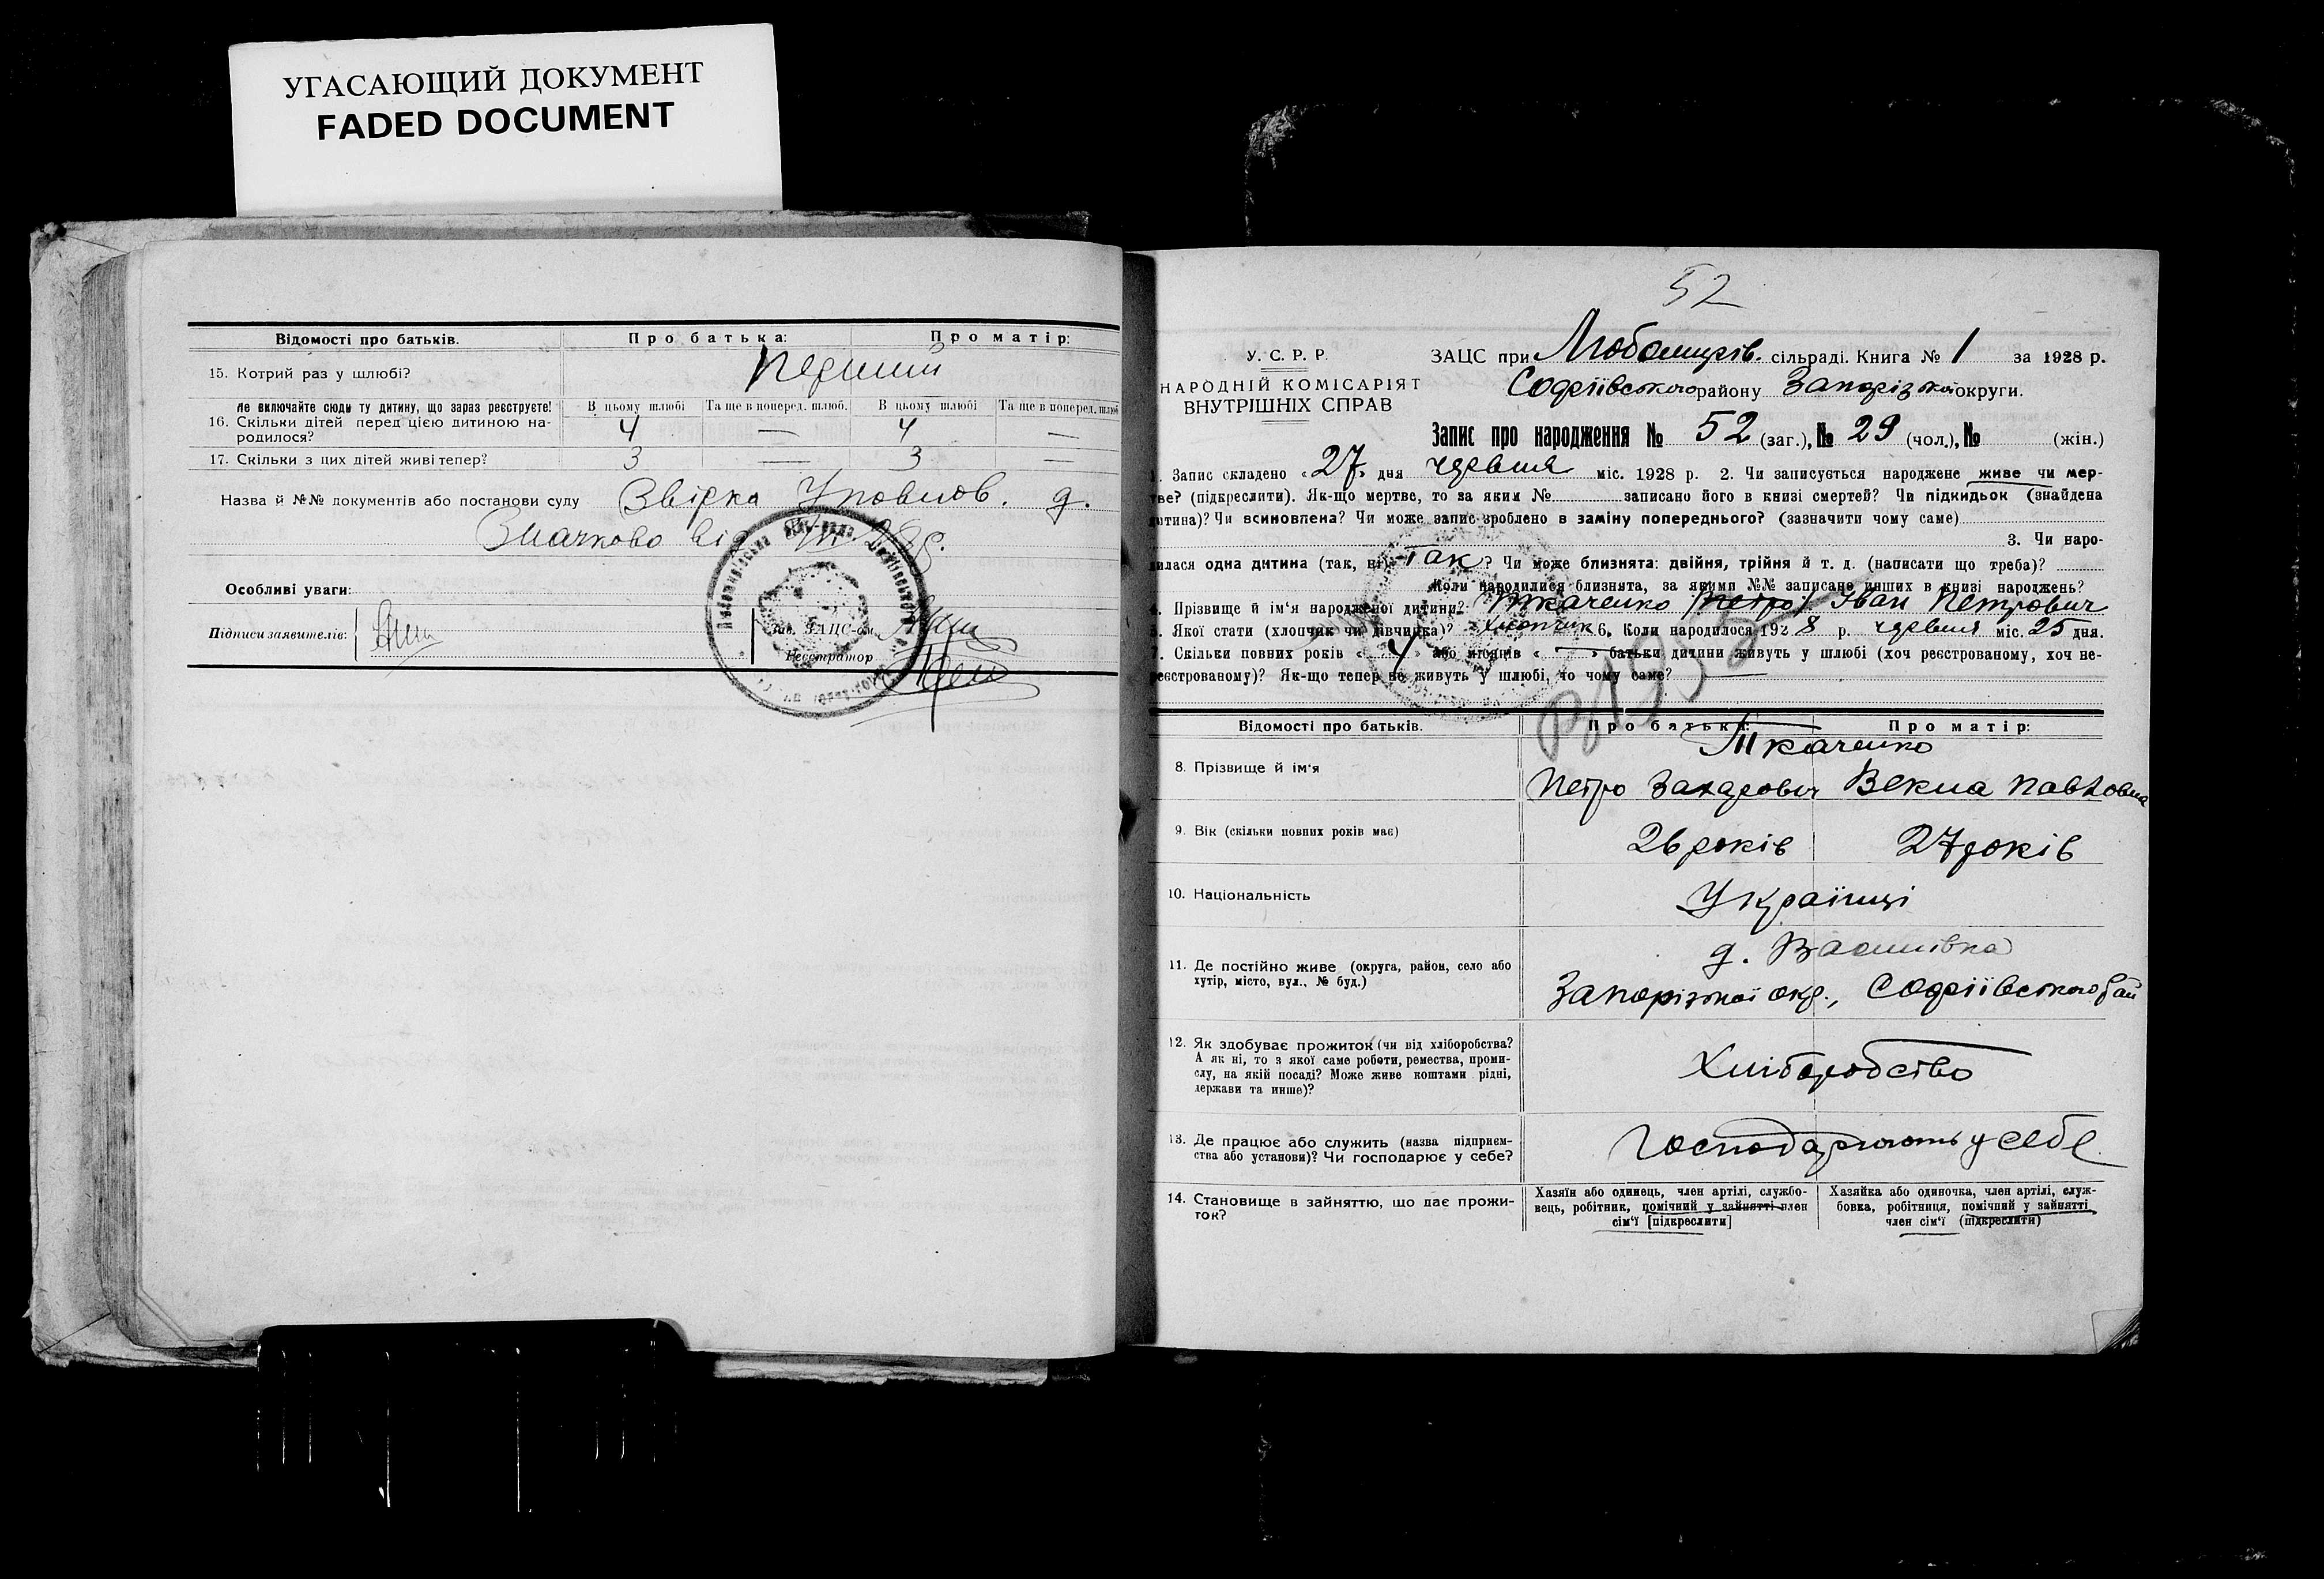 УГАСАЮЩИЙ ДОКУМЕНТ
FADED DOCUMENT
Відомості про батьків. Про батька: Про матір:
15. Котрий раз у шлюбі? Перший
Не включайте сюди ту дитину, що зараз реєструєте! В цьому шлюбі Та ще в поперед. шлюб. В цьому шлюбі Та ще в поперед. шлюб
16. Скільки дітей перед цією дитиною на-
родилося? 4 — 4 —
17. Скільки з цих дітей живі тепер? 3 — 3 —
Назва й №№ документів або постанови суду Звірка Уповнов. д.
Особливі уваги:
Підписи заявителів:
Зав. ЗАЦС-ом
Реєстратор
52
У. С. Р. Р.
НАРОДНІЙ КОМІСАРІЯТ
ВНУТРІШНІХ СПРАВ
ЗАЦС при Любомирів. сільраді. Книга № 1 за 1928 р.
Софіївського району Запорізької округи.
Запис про народження № 52 (заг.), № 29 (чол.), № (жін.)
1. Запис складено «27» дня червня міс. 1928 р. 2. Чи записується народжене живе чи мер-
тве? (підкреслити). Як-що мертве, то за яким № записано його в книзі смертей? Чи підкидьок (знайдена
дитина)? Чи всиновлена? Чи може запис зроблено в заміну попереднього? (зазначити чому саме)
3. Чи наро-
дилася одна дитина (так, ні) Так? Чи може близнята: двійня, трійня й т. д. (написати що треба)?
Коли народилися близнята, за якими №№ записано инших в книзі народжень?
4. Прізвище й ім'я народженої дитини? Ткаченко (Петро) Іван Петрович
5. Якої стати (хлопчик чи дівчинка)? Хлопчик 6. Коли народилося 1928 р. червня міс. 25 дня.
7. Скільки повних років «4» або місяців «—» батьки дитини живуть у шлюбі (хоч реєстрованому, хоч не-
реєстрованому)? Як-що тепер не живуть у шлюбі, то чому саме? —
Відомості про батьків. Про батька: Про матір:
Ткаченко
8. Прізвище й ім'я
Петро Захарович Векла Павловна
9. Вік (скільки повних років має) 26 років 27 років
10. Національність Українці
д. Василівка
11. Де постійно живе (округа, район, село або
хутір, місто, вул., № буд.) Запорізької окр., Софіївського рай
12. Як здобуває прожиток (чи від хліборобства?
А як ні, то з якої саме роботи, ремества, проми-
слу, на якій посаді? Може живе коштами рідні,
держави та инше)? Хліборобство
13. Де працює або служить (назва підприєм-
ства або установи)? Чи господарює у себе? Господарюють у себе
14. Становище в зайняттю, що дає прожи-
ток?
Хазяїн або одинець, член артілі, службо-
вець, робітник, помічний у зайнятті член
сім'ї [підкреслити]
Хазяйка або одиночка, член артілі, служ-
бовка, робітниця, помічний у зайнятті
член сім'ї (підкреслити)